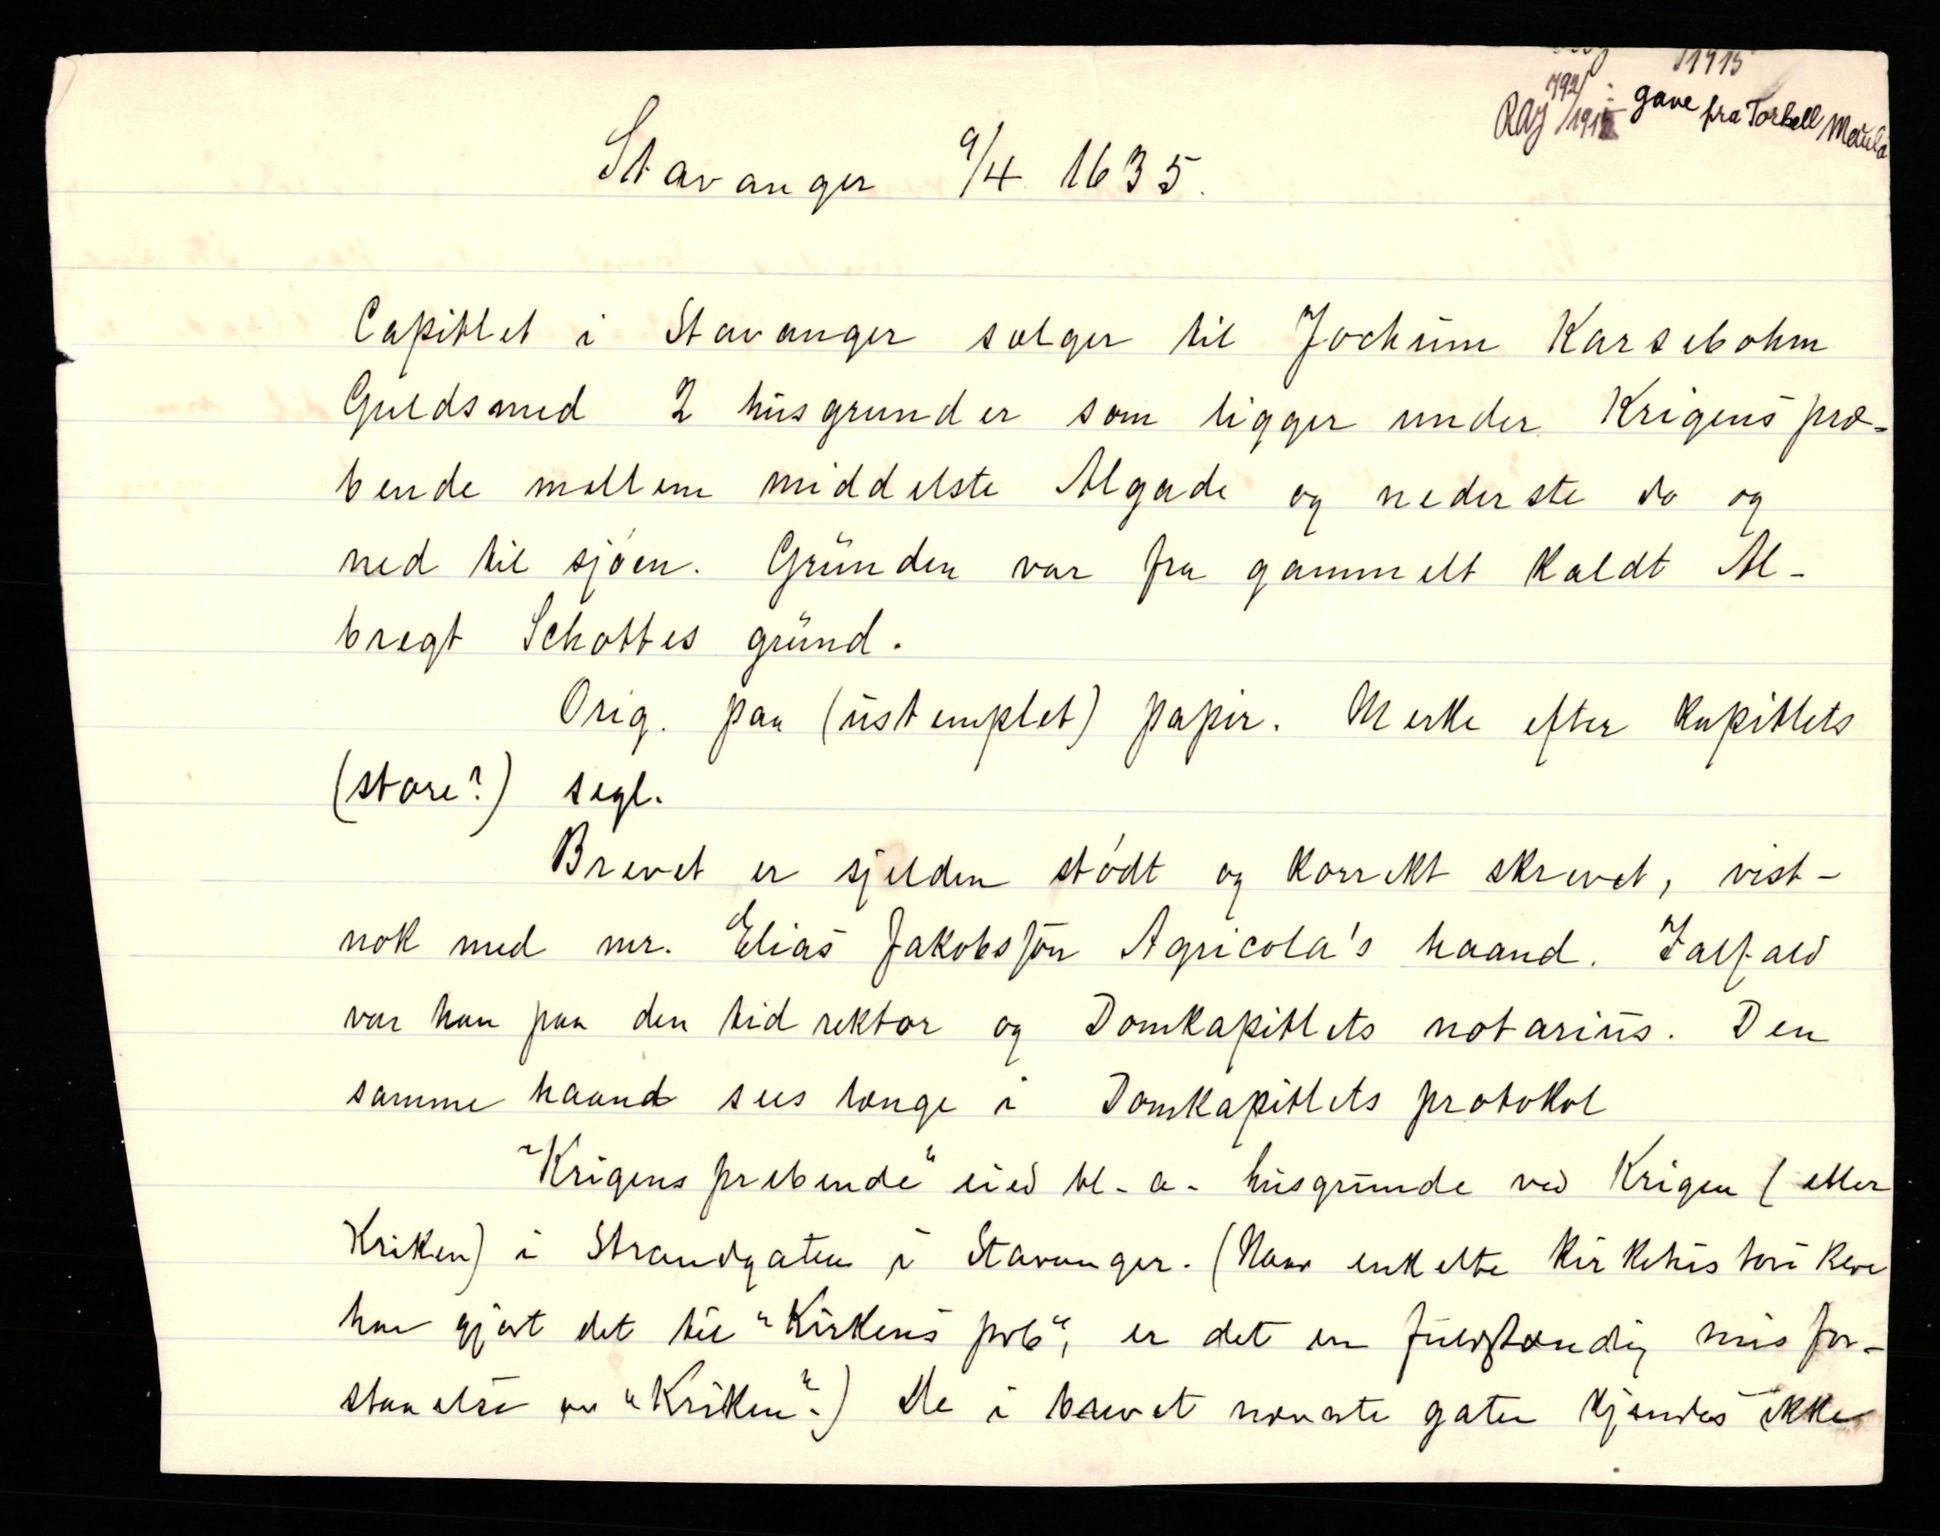 1915
Stavanger 9/4 1635.
792/1915 : gave fra Torkell Mauland
Capitlet i Stavanger sælger til Jochum Karsebohm
Guldsmed 2 husgrunder som ligger under Krigens præ-
bende mellem middelste Algade og nederste do og
ned til sjøen. Grunden var fra gammelt kaldt Al-
bregt Schottes grund.
Orig. paa (ustemplet) papir. Merke efter kapitlets
(store?) segl.
Brevet er sjelden stødt og korrekt skrevet, vist-
nok med mr. Elias Jakobssøn Agricola's haand. Ialfald
var han paa den tid rektor og Domkapitlets notarius. Den
samme haand sees længe i Domkapitlets protokol
"Krigens prebende" eied bl. a. husgrunde ved Krigen (eller
Kriken) i Strandgaten i Stavanger. (Naar enkelte kirkehistorikere
har gjort det til "Kirkens prb", er det en fuldstændig misfor-
staaelse av "Kriken".) De i brevet nævnte gater kjendes ikke